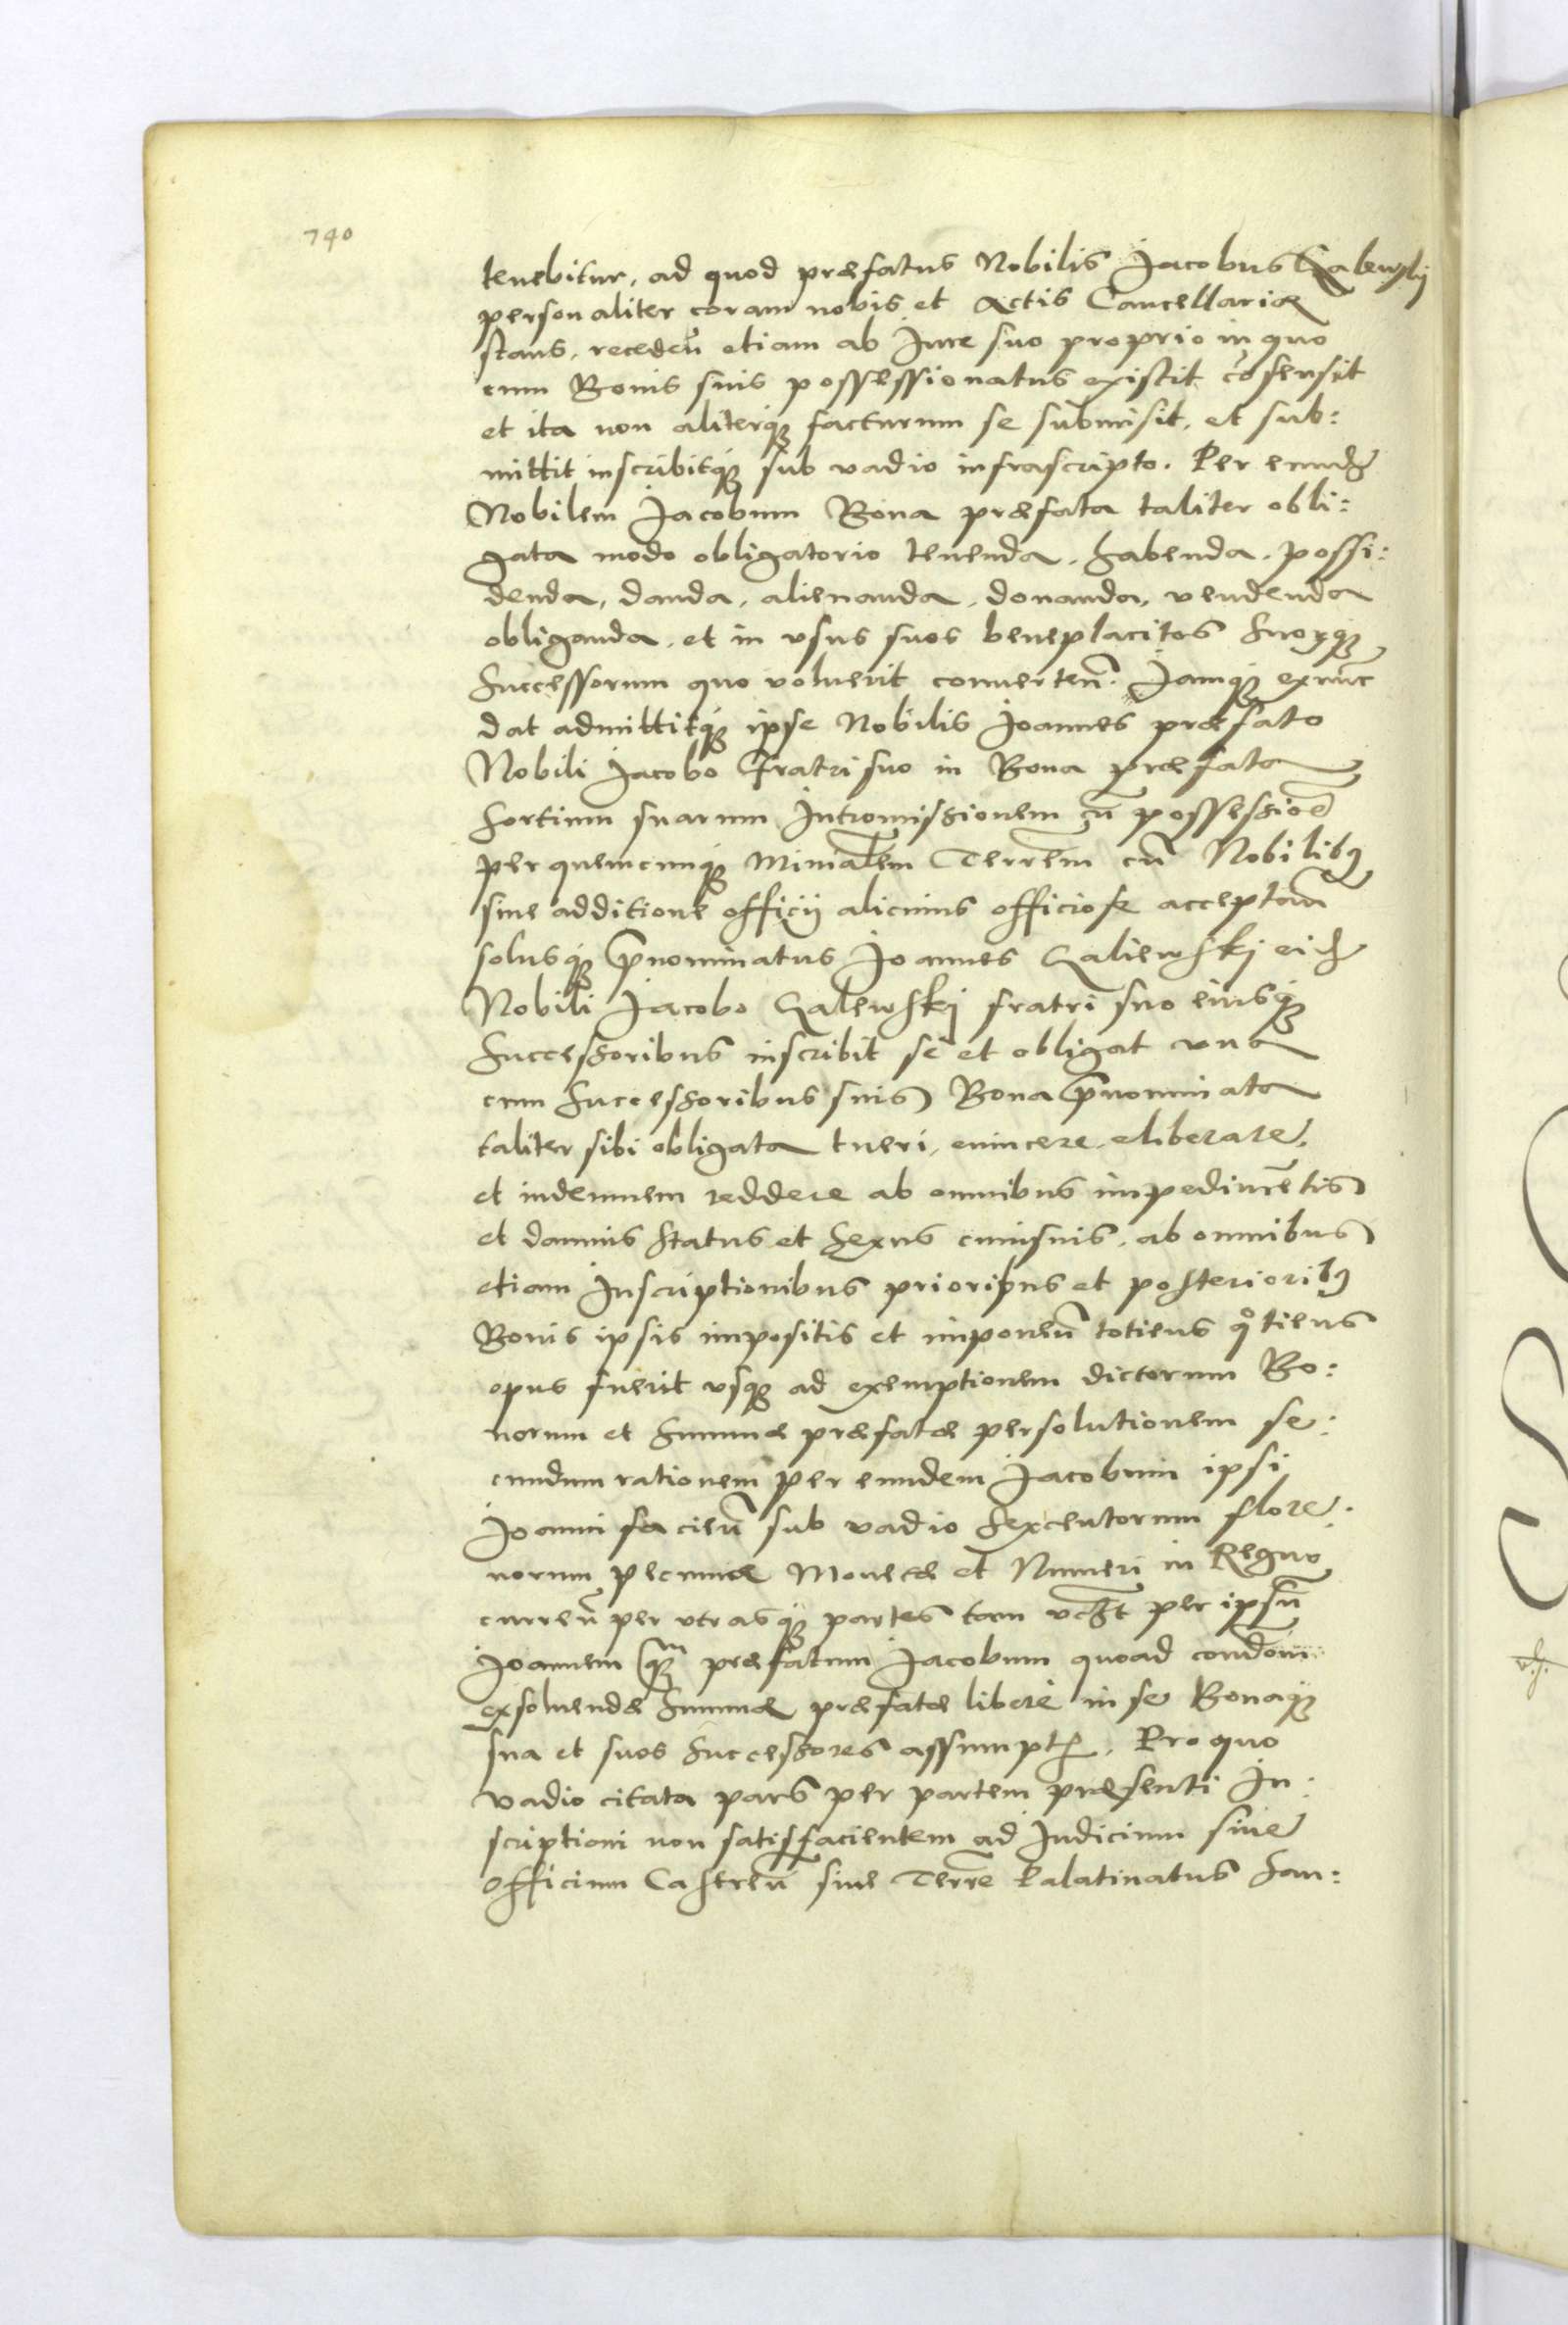 740
tenebitur, ad quod præfatus Nobilis Jacobus Zalewskij
personaliter coram nobis et Actis Cancellariæ
stans, recedeñ etiam ab Jure suo proprio in quo
cum Bonis suis possessionatus existit cõsensit
et ita non aliterq3 facturum se submisit, et sub:
mittit inscribitq3 sub vadio infrascripto. Per eund
Nobilem Jacobum Bona præfata taliter obli:
gata modo obligatorio tenenda, habenda, possi:
denda, danda, alienanda, donanda, vendenda
obliganda, et in vsus suos beneplacitos Suorq3
Successorum quo voluerit conuerteñ. Jamq3 exnũc
dat admittitq3 ipse Nobilis Joannes præfato
Nobili Jacobo Fratri suo in Bona præfata
Sortium suarum Intromissionem cũ possessioẽ
per quemcunq3 Miniãlem Terrẽm cũ Nobilib9
siue additione officij alicuius officiose acceptañ
solusq3 p̃nominatus Joannes Zaliewskj eid
Nobili Jacobo Zalewskj fratri suo eiusq3
Successoribus inscribit se et obligat vna
cum Successoribus suis Bona p̃nominata
taliter sibi obligata tueri, euincere, eliberare,
et indemnem reddere ab omnibus impedimẽtis
et damnis Status et Sexus cuiusuis, ab omnibus
etiam Inscriptionibus prioribus et posteriorib9
Bonis ipsis impositis et imponeñ totiens qͦtiens
opus fuerit vsq3 ad exemptionem dictorum Bo:
norum et Summæ præfatæ persolutionem se:
cundum rationem per eundem Jacobum ipsi
Joanni facieñ sub vadio Sexcentorum flore:
norum pecuniæ Monetæ et Numeri in Regno
curreñ per vtrasq3 partes tam per ipsũ
Joannem præfatum Jacobum quoad
exsoluendæ Summæ præfatæ liberè in se Bonaq3
sua et suos Successores assumpt. Pro quo
vadio citata pars per partem præsenti In:
scriptioni non satisfacientem ad Judicium siue
Officium Castreñ siue Terrẽ Palatinatus San: